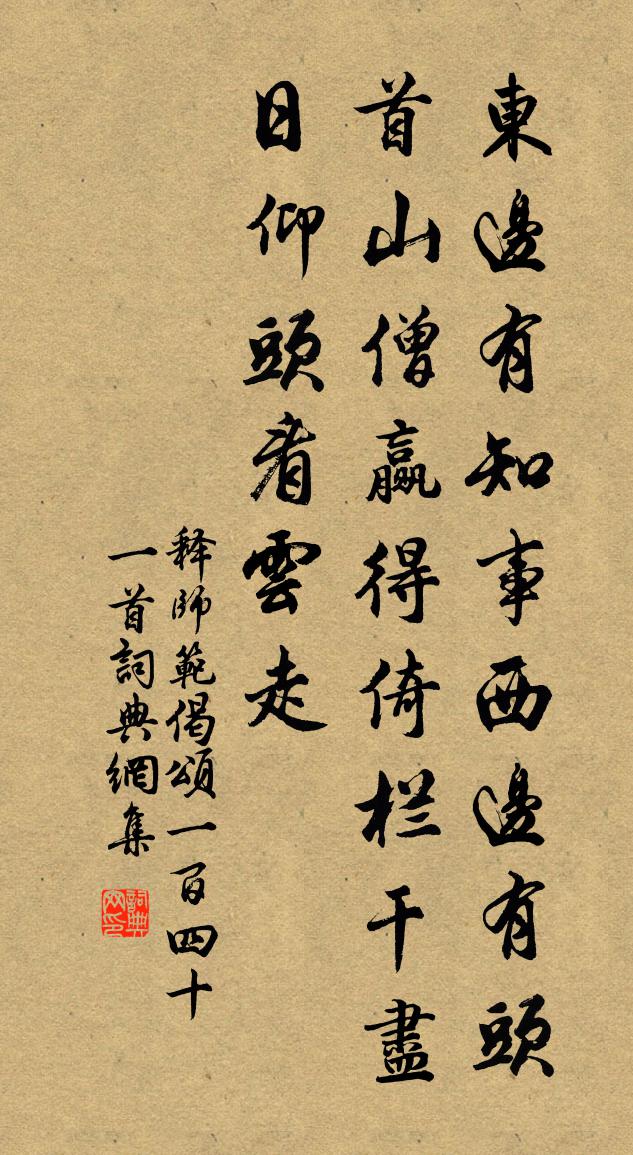 東邊有知事西邊有頭
首山僧贏得倚栏干盡
日仰頭看雲走
释師範偈頌一百四十
一首詞典網集
詞典网印